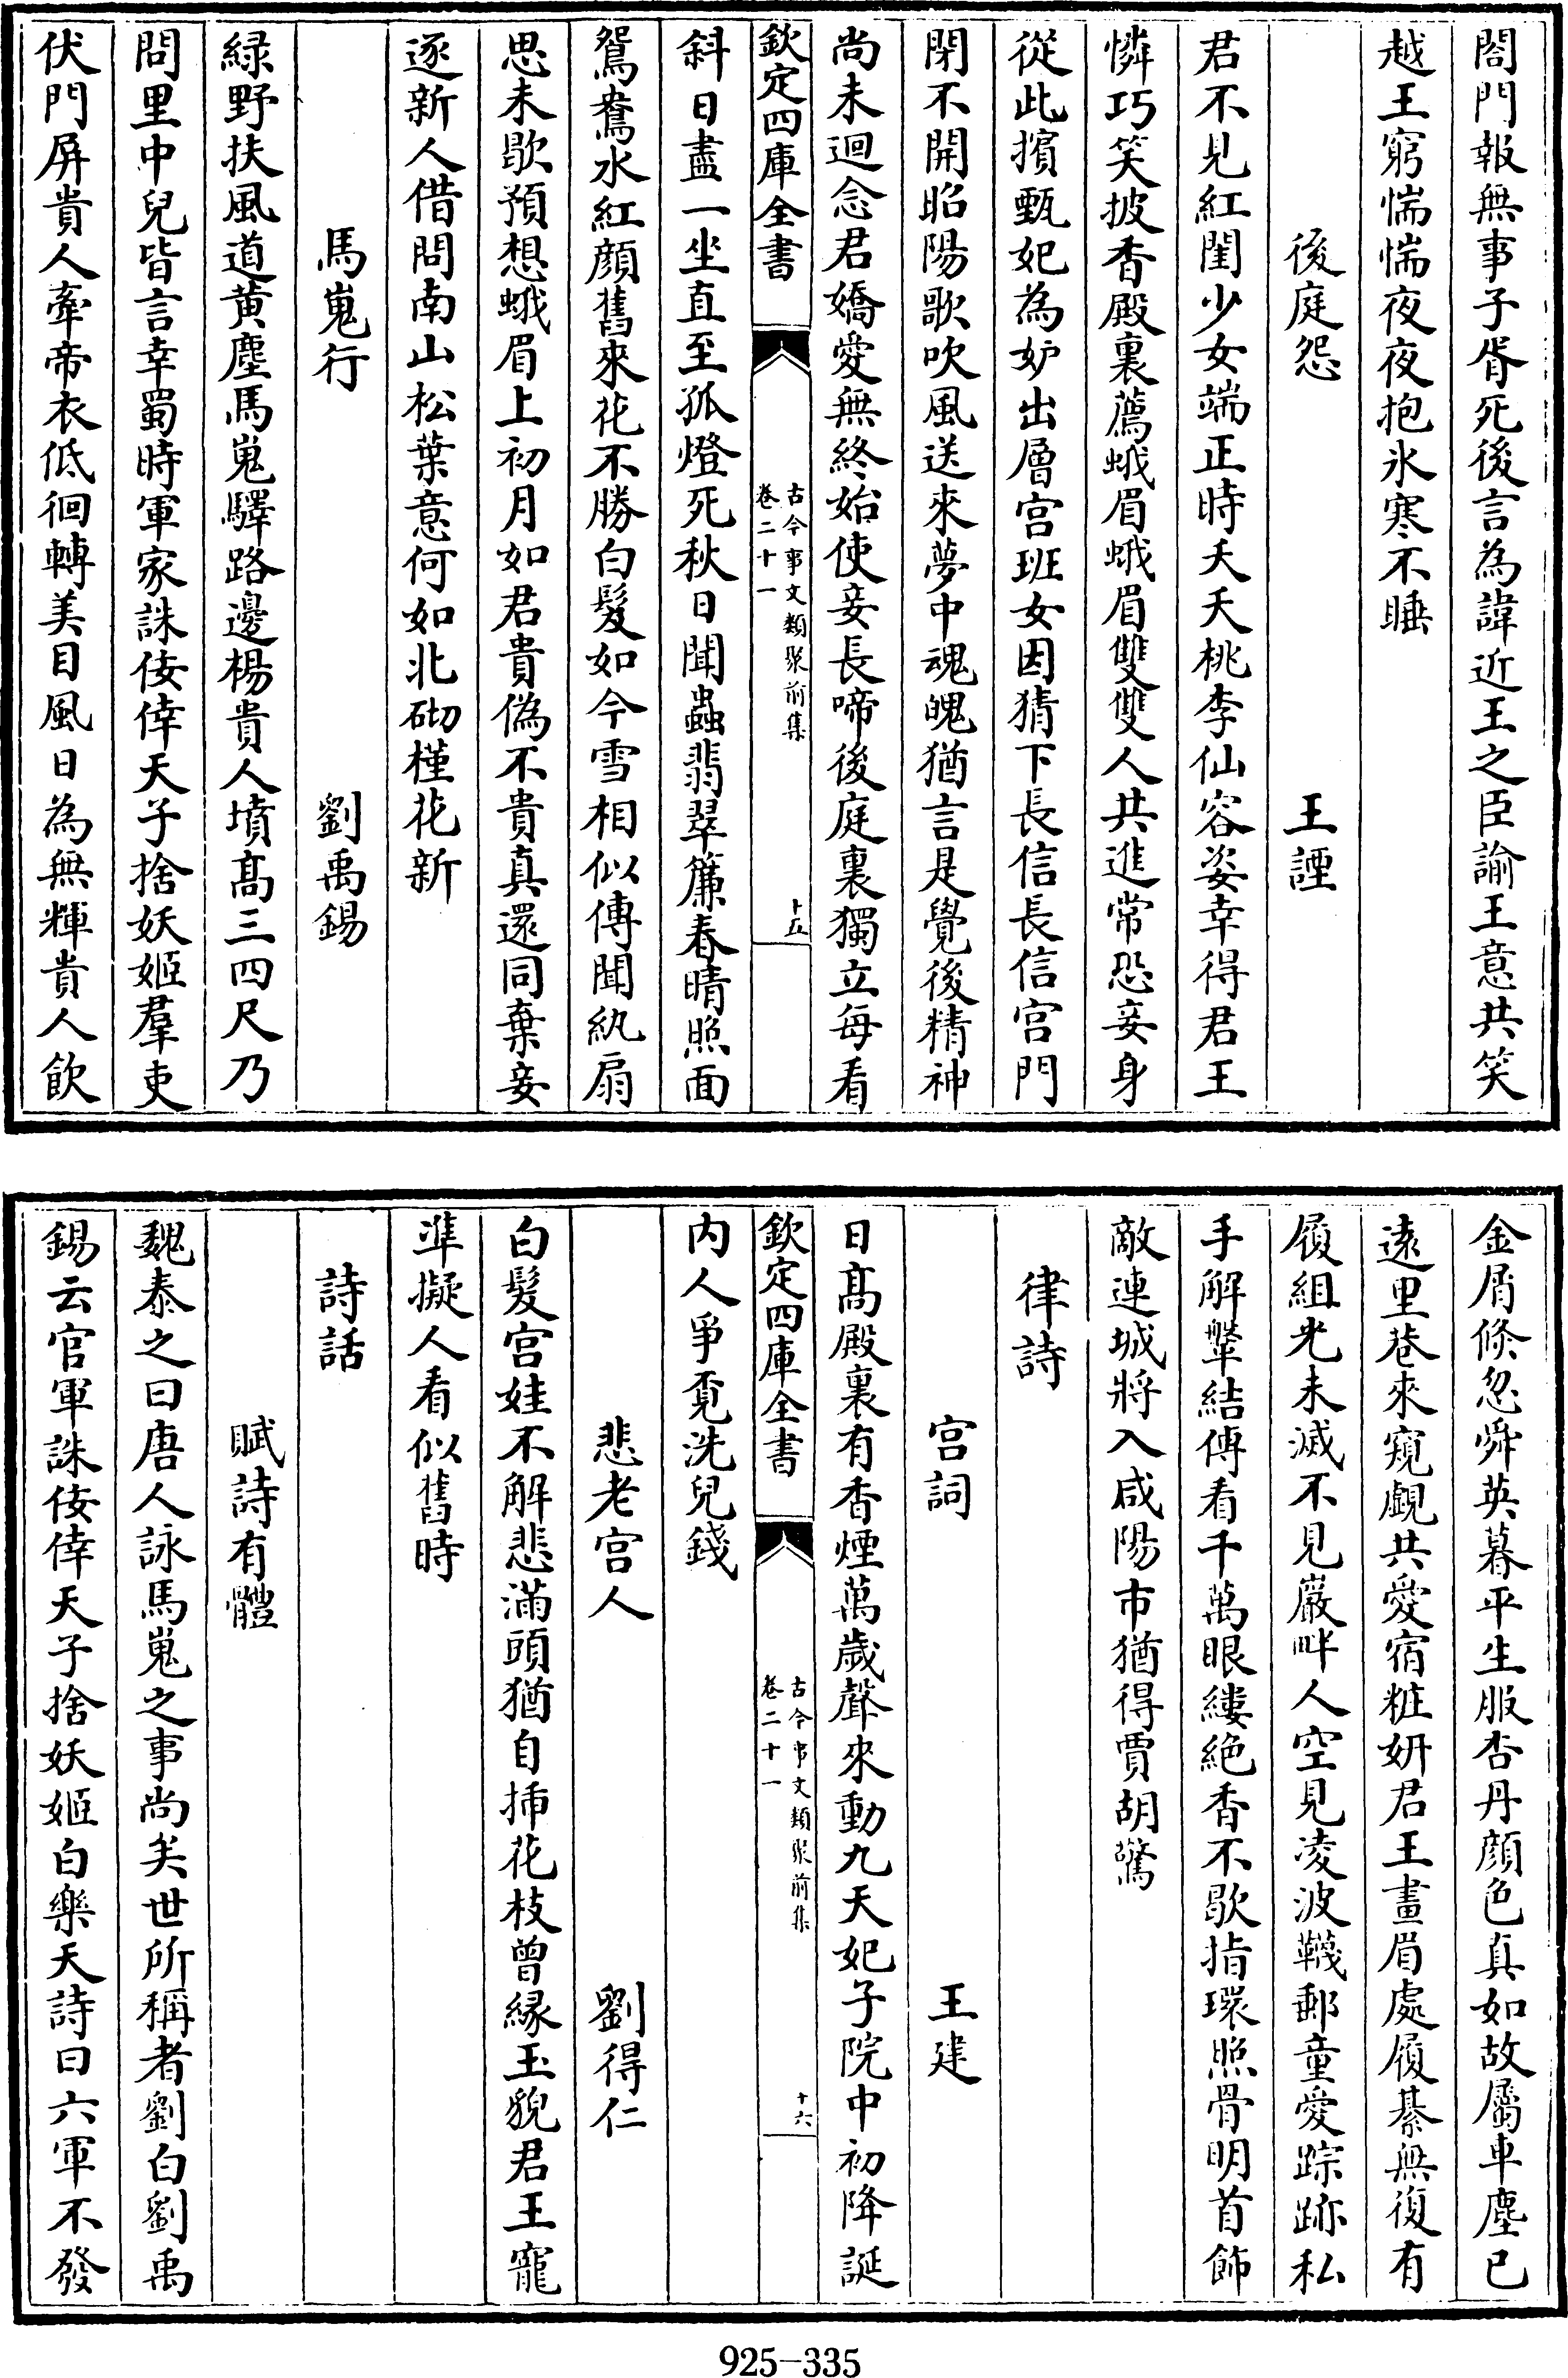 閤門報無事子胥死後言為諱近王之臣諭王意共笑
越王窮惴惴夜夜抱氷寒不睡
後庭怨　王諲
君不見紅閨少女端正時夭夭桃李仙容姿幸得君王
憐巧笑披香殿裏薦蛾眉蛾眉雙雙人共進常恐妾身
從此擯甄妃為妒出層宫班女因猜下長信長信宫門
閉不開昭陽歌吹風送來夢中魂魄猶言是覺後精神
尚未迴念君嬌愛無終始使妾長啼後庭裏獨立每看
欽定四庫全書
古今事文類聚前集
卷二十一
十五
斜日盡一坐直至孤燈死秋日聞蟲翡翠簾春晴照面
鴛鴦水紅顔舊來花不勝白髮如今雪相似傳聞紈扇
思未歇預想蛾眉上初月如君貴偽不貴真還同棄妾
逐新人借問南山松葉意何如北砌槿花新
馬嵬行　劉禹錫
緑野扶風道黄塵馬嵬驛路邊楊貴人墳髙三四尺乃
問里中兒皆言幸蜀時軍家誅佞倖天子捨妖姬羣吏
伏門屏貴人牽帝衣低徊轉美目風日為無輝貴人飲
金屑倏忽舜英暮平生服杏丹顔色真如故屬車塵已
逺里巷來窺覷共愛宿粧妍君王畫眉處履綦無復有
履組光未滅不見巖畔人空見凌波韈郵童愛踪跡私
手解鞶結傳看千萬眼縷絶香不歇指環照骨明首飾
敵連城將入咸陽市猶得賈胡驚
律詩
宫詞　王建
日髙殿裏有香煙萬歲聲來動九天妃子院中初降誕
欽定四庫全書
古今事文類聚前集
卷二十一
十六
内人爭覔洗兒錢
悲老宫人　劉得仁
白髮宫娃不解悲滿頭猶自挿花枝曾緣玉貌君王寵
凖擬人看似舊時
詩話
賦詩有體
魏泰之曰唐人詠馬嵬之事尚矣世所稱者劉白劉禹
錫云官軍誅佞倖天子捨妖姬白樂天詩曰六軍不發
925-335